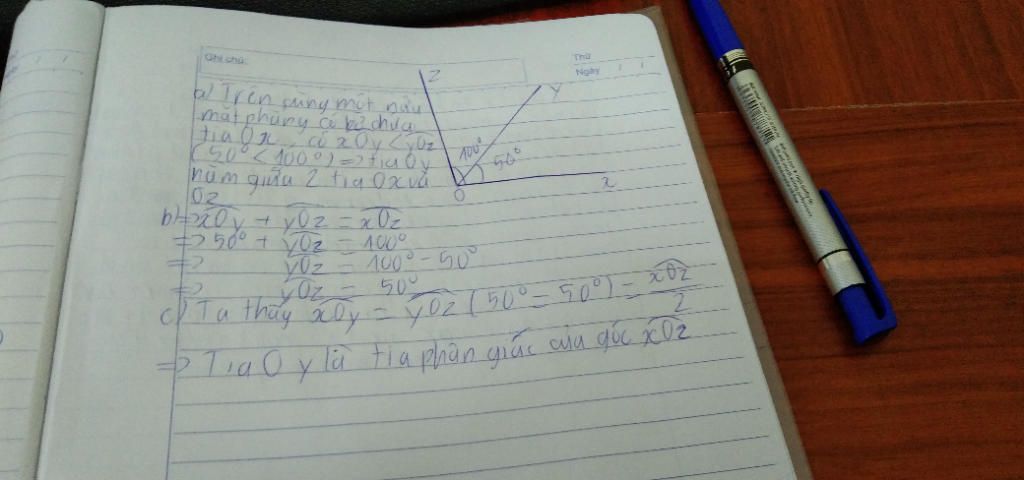 Ghi chú:
Thứ
Ngày / /
z
y
a) Trên cùng một nửa
mặt phẳng có bờ chứa
tia Ox, có xOy < yOz
(50° < 100°) => tia Oy
nằm giữa 2 tia Ox và
Oz
100°
50°
x
O
b) => xOy + yOz = xOz
=> 50° + yOz = 100°
=> yOz = 100° - 50°
=> yOz = 50°
c) Ta thấy xOy = yOz (50° = 50°) = xOz/2
=> Tia Oy là tia phân giác của góc xOz